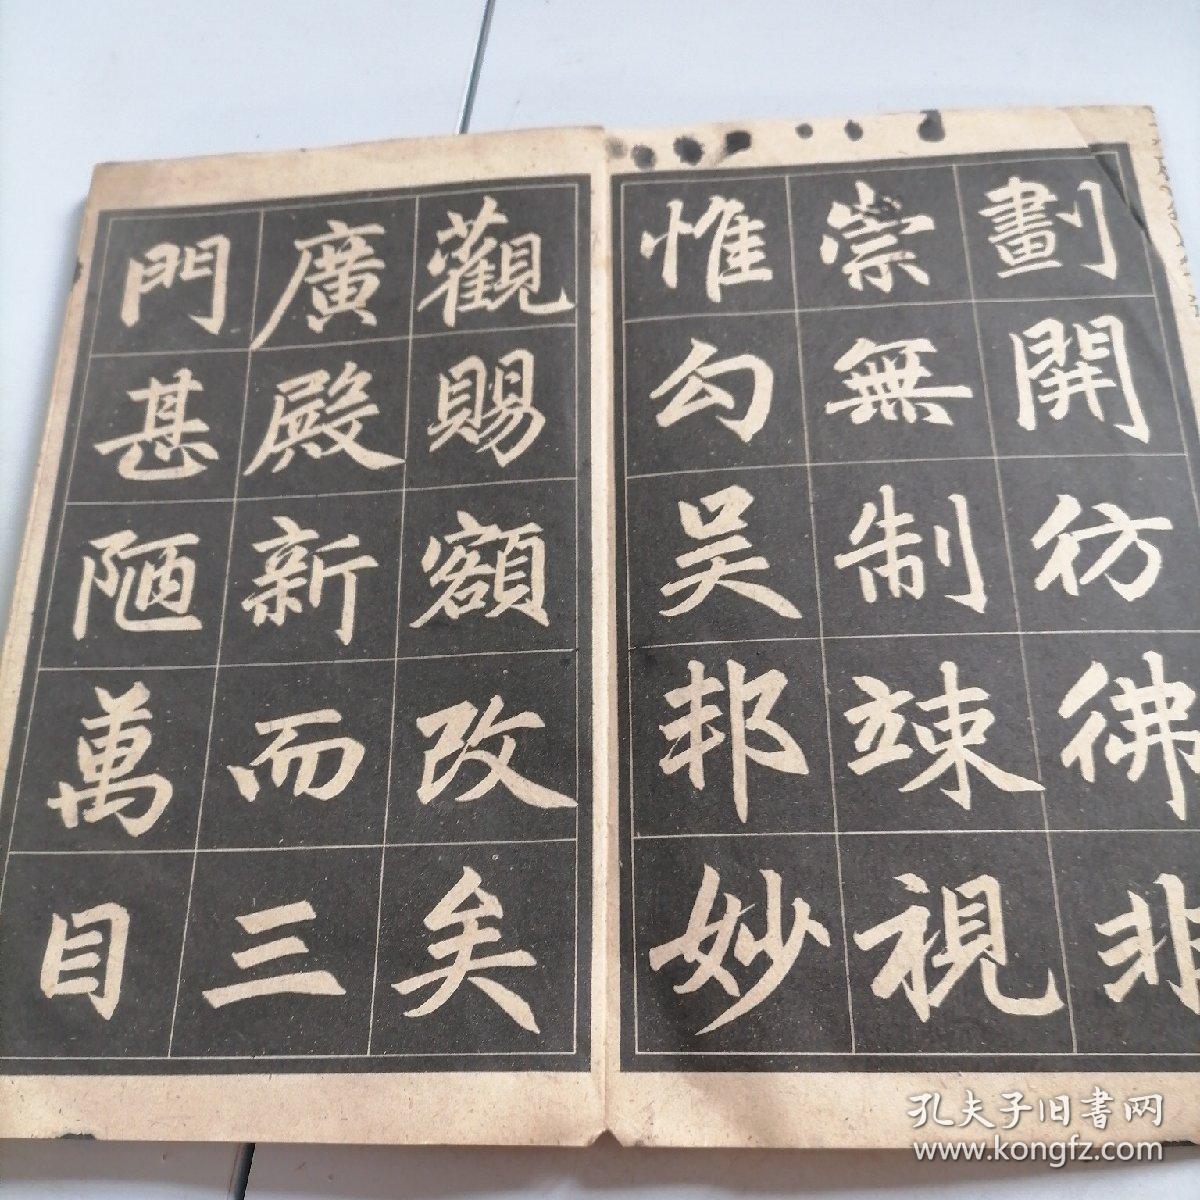 劃開彷彿非
崇無制竦視
惟勾吴邦妙
觀賜額改矣
廣殿新而三
門甚陋萬目
孔夫子旧書网
www.kongfz.com